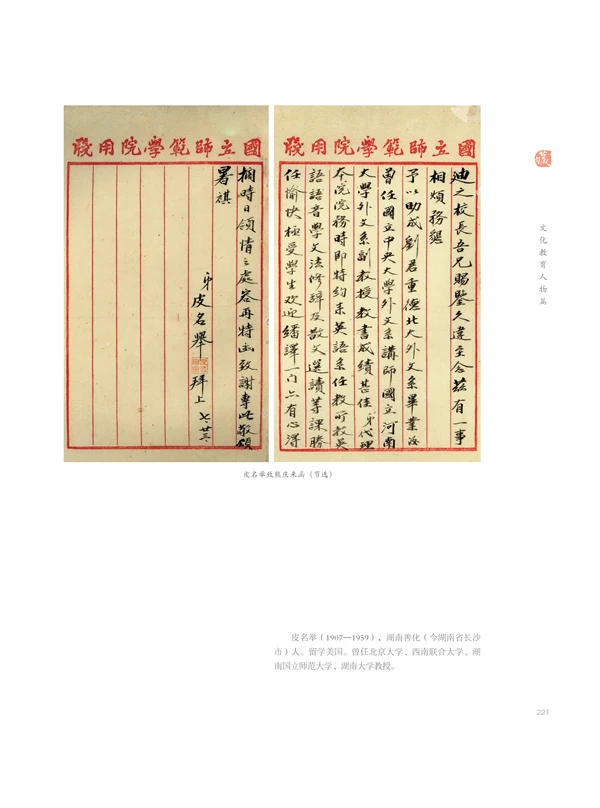 國立師範學院用箋
迪之校長吾兄賜鑒久違至念茲有一事
相煩務懇
予以助成劉君重德北大外文系畢業後
曾任國立中央大學外文系講師國立河南
大學外文系副教授教書成績甚佳弟代理
本院院務時即特約來英語系任教所教英
語語音學文法修辭及散文選讀等課勝
任愉快極受學生欢迎繙譯一门亦有心得
國立師範學院用箋
擱時日領情之處容再特函致謝專此敬頌
暑祺
弟皮名舉拜上 七、廿三、
皮名举致熊庆来函（节选）
文化教育人物篇
皮名举（1907—1959），湖南善化（今湖南省长沙
市）人。留学美国。曾任北京大学、西南联合大学、湖
南国立师范大学、湖南大学教授。
221